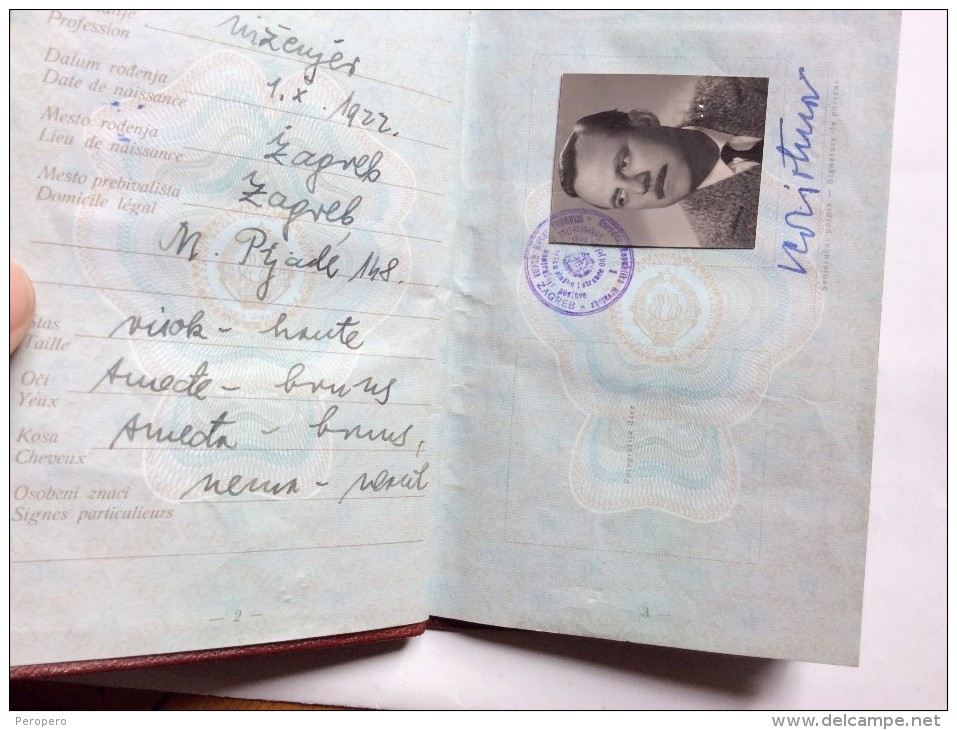 Profession
inženjer
Datum rođenja
Date de naissance
1. X. 1922.
Mesto rođenja
Lieu de naissance
Zagreb
Mesto prebivališta
Domicile légal
Zagreb
M. Pijade 148.
Stas
Taille
visok - haute
Oči
Yeux
smeđe - bruns
Kosa
Cheveux
smeđa - bruns,
Osobeni znaci
Signes particulieurs
nema - neant
— 2 —
ZAGREB
Fotografija dece
Svojeručni potpis — Signature du porteur
— 3 —
Peropero
www.delcampe.net